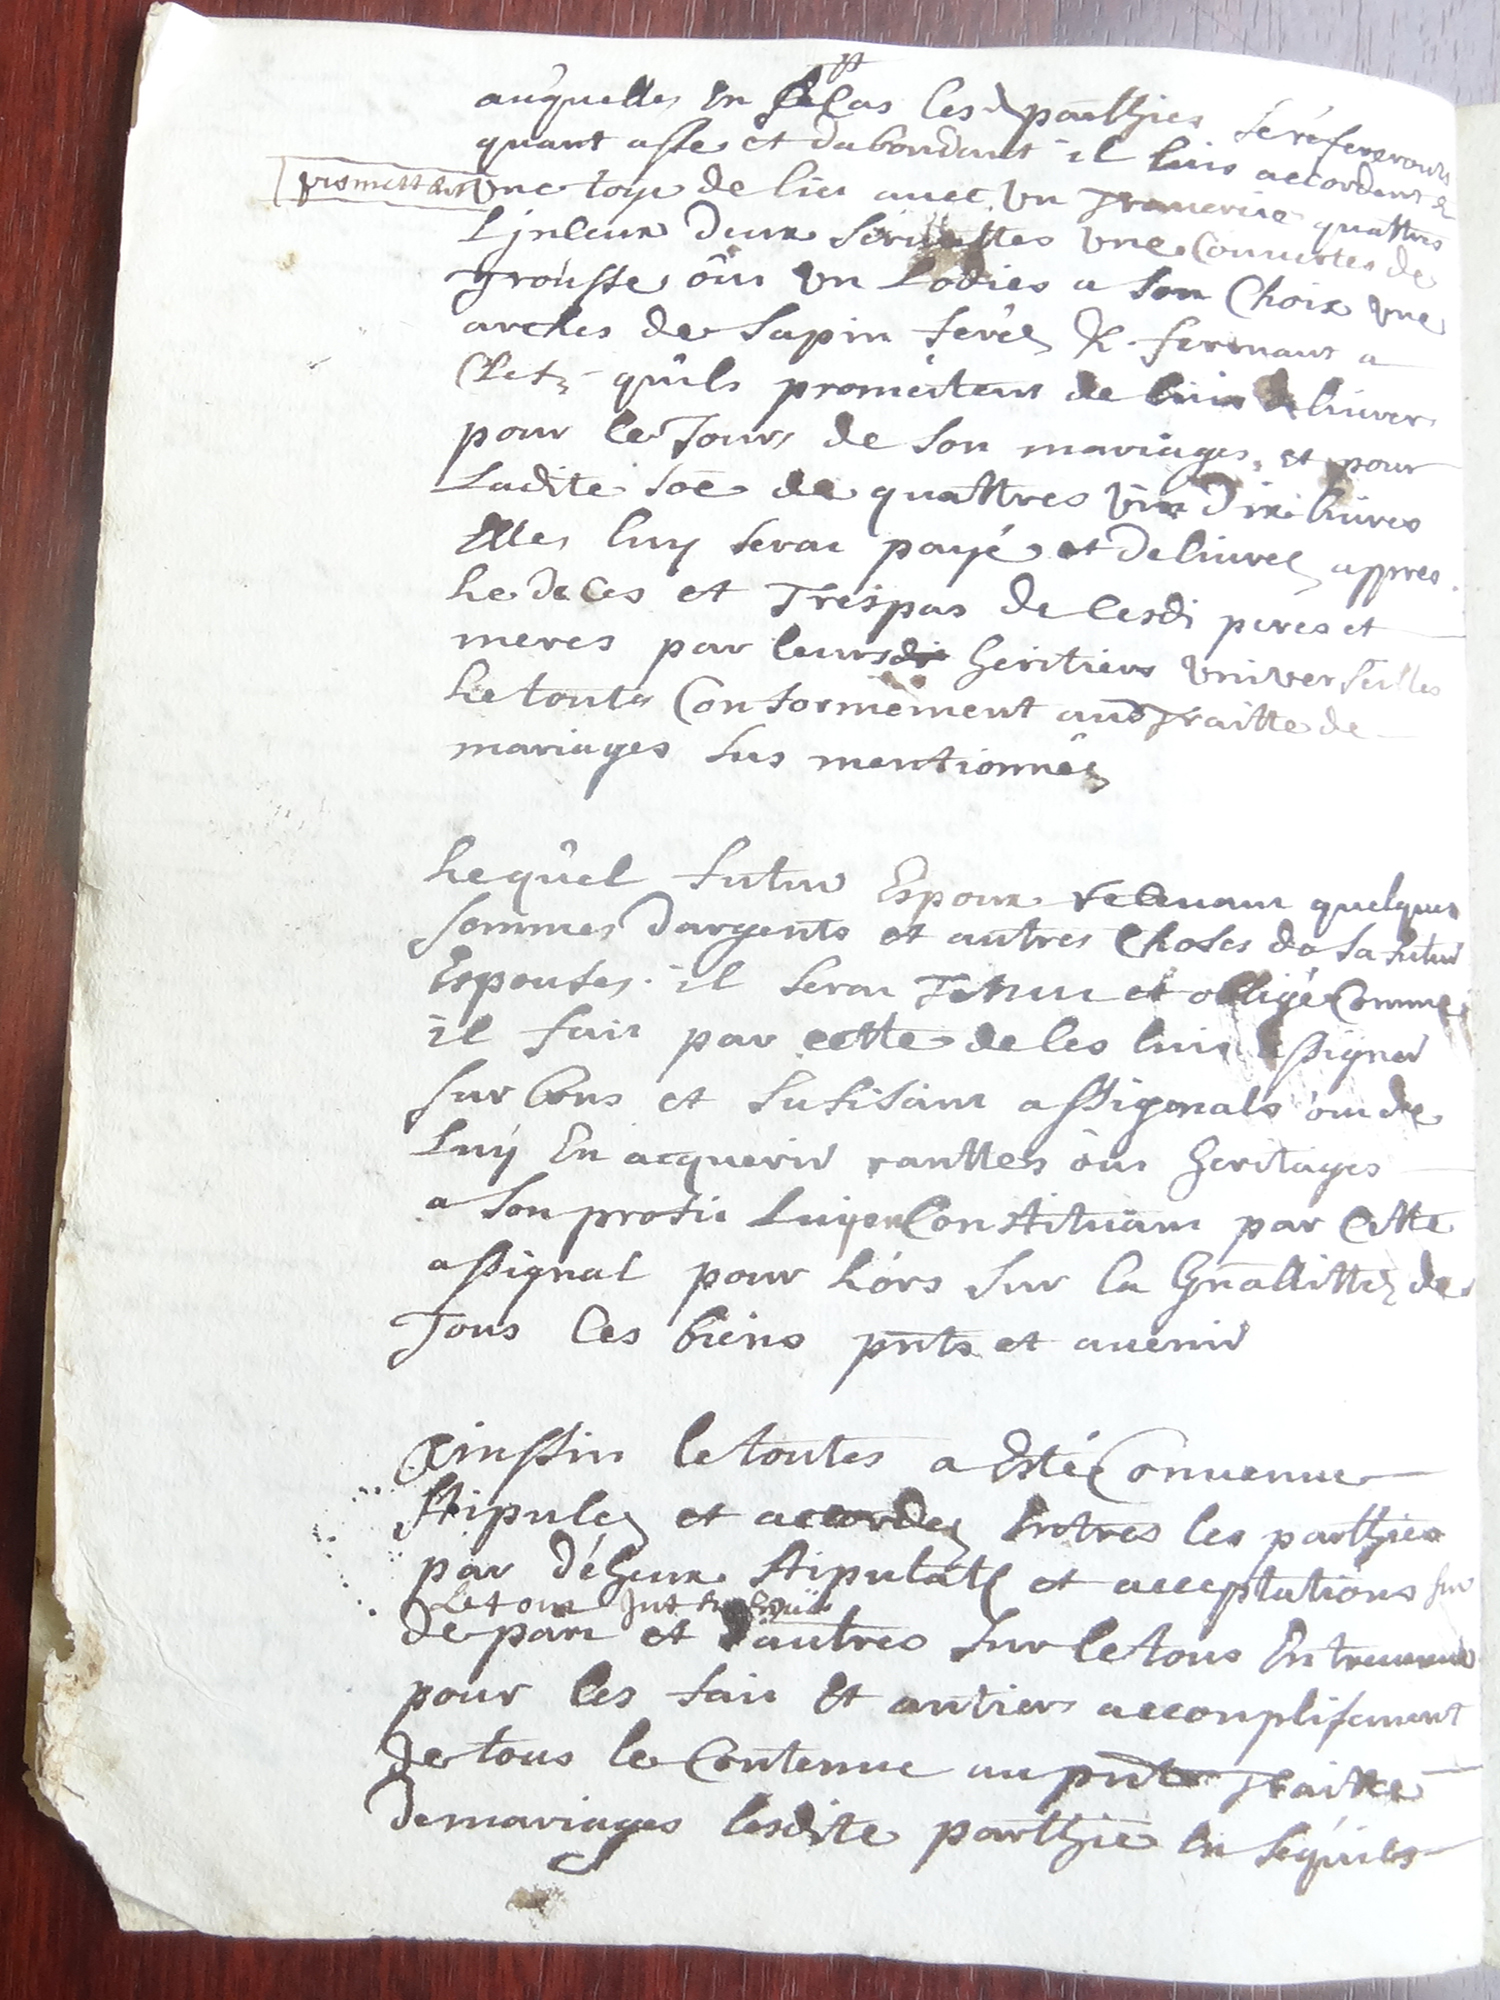 auquelles En ce Cas lesd parthies se réfererons
quant a sse et dabondant il luis accordent &
promettent Une toye de lict auec un Trauersie quattres
Linceux deux Seruiettes une Couuertes de
grousse oûu un Lodies a Son Choix une
arches de Sapin feréé & fermant a
Clefz qu'ils promettent de luis deliurer
pour le Jours de Son mariages, et pour
Ladite Soe de quattres vin Dix liures
Elles luy Serat payé et deliureé appres
Le deces et Trespas de Cesdi peres et
meres par leurs heritiers universelles
Le toutes Conformement aud Traitte de
mariages Sus mentionneé
Lequ'el futur Espoux receuant quelques
sommes d'argents et autres Choses de Sa futur
Espouses. il Serat Tenu et obligé Comme
il fait par cette de les luis assigner
sur bons et Sufisant assignals ou de
Luÿ En acquerir ranttes oùu heritages
a Son profit Luy en Constituant par Cette
assignal pour Lórs Sur la Gnallittéz de
Tous Ces biens pnts et auenir
Ainssin le toutes a Esté Conuenue
Stipuleé et accordeé Entres les parthies
par déheux Stipulatõ et acceptations sur
Le tout Interuenüe
de part et d'autres Sur le tous Entreuenue
pour les fait Et antiers accomplisement
de tous le Contenue au pnt Traitté
de mariages lesdite parthie En Sequ'iles